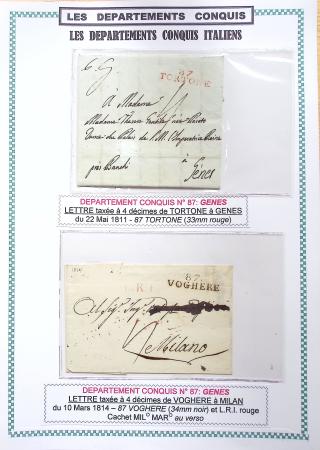 LES DEPARTEMENTS CONQUIS
LES DEPARTEMENTS CONQUIS ITALIENS
87
TORTONE
A Madame
Madame
Dame du Palais de S.M. l'Impératrice Reine
à
près Banchi
Gênes
DEPARTEMENT CONQUIS N° 87: GENES
LETTRE taxée à 4 décimes de TORTONE à GENES
du 22 Mai 1811 - 87 TORTONE (33mm rouge)
87
VOGHERE
Milano
DEPARTEMENT CONQUIS N° 87: GENES
LETTRE taxée à 4 décimes de VOGHERE à MILAN
du 10 Mars 1814 – 87 VOGHERE (34mm noir) et L.R.I. rouge
Cachet MILᴼ MARᴼ au verso